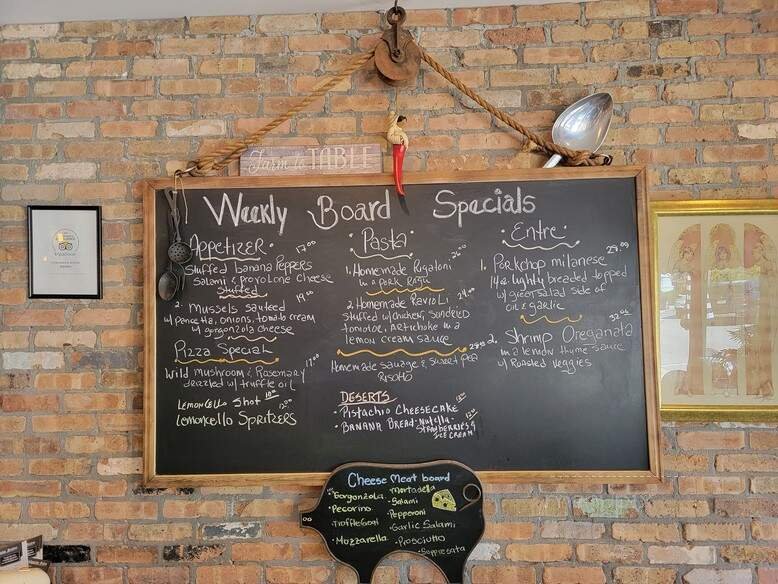 Farm to TABLE
Weekly Board Specials
Appetizer 17.00
Stuffed banana Peppers
Salami & Provolone Cheese
Stuffed
19.00
2. Mussels sauteed
w/ pancetta, onions, tomato cream
w/ gorgonzola cheese
Pizza Special
17.00
Wild mushroom & Rosemary
drazled w/ truffle oil
Lemoncello Shot 10.00
Lemoncello Spritzers 12.00
Pasta
26.00
1. Homemade Rigatoni
in a pork Ragu
24.00
2. Homemade Ravioli
Stuffed w/ chicken, sundried
tomatoe, Artichoke in a
lemon cream sauce
28.00
Homemade sausage & sweet pea
Risotto
Deserts
• Pistachio Cheesecake
• Banana Bread - Nutella -
Strawberries &
Ice Cream
Entre
29.00
1. Porkchop milanese
14oz lightly breaded topped
w/ green salad side of
oil & garlic
32.00
2. Shrimp Oreganata
in a lemon thyme sauce
w/ Roasted veggies
Cheese Meat board
• Gorgonzola
• Pecorino
• Truffle Goat
• Mozzarella
Mortadella
• Salami
• Pepperoni
• Garlic Salami
• Prosciutto
• Soppresata